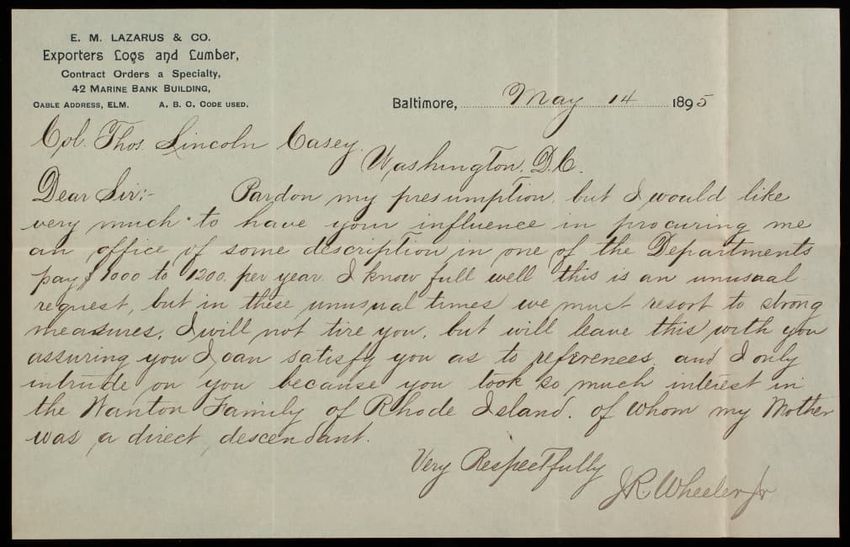 E. M. LAZARUS & CO.
Exporters Logs and Lumber,
Contract Orders a Specialty,
42 MARINE BANK BUILDING,
CABLE ADDRESS, ELM. A. B. C. CODE USED.
Baltimore, May 14 1895
Col. Thos. Lincoln Casey.
Washington. D.C.
Dear Sir:- Pardon my presumption, but I would like
very much to have your influence in procuring me
an office of some description in one of the Departments
pay $1000 to 1200. per year. I know full well this is an unusual
request, but in these unusual times we must resort to strong
measures. I will not tire you, but will leave this with you
assuring you I can satisfy you as to references, and I only
intrude on you because you took so much interest in
the Wanton Family of Rhode Island. of whom my Mother
was a direct descendant.
Very Respectfully
J R Wheeler Jr